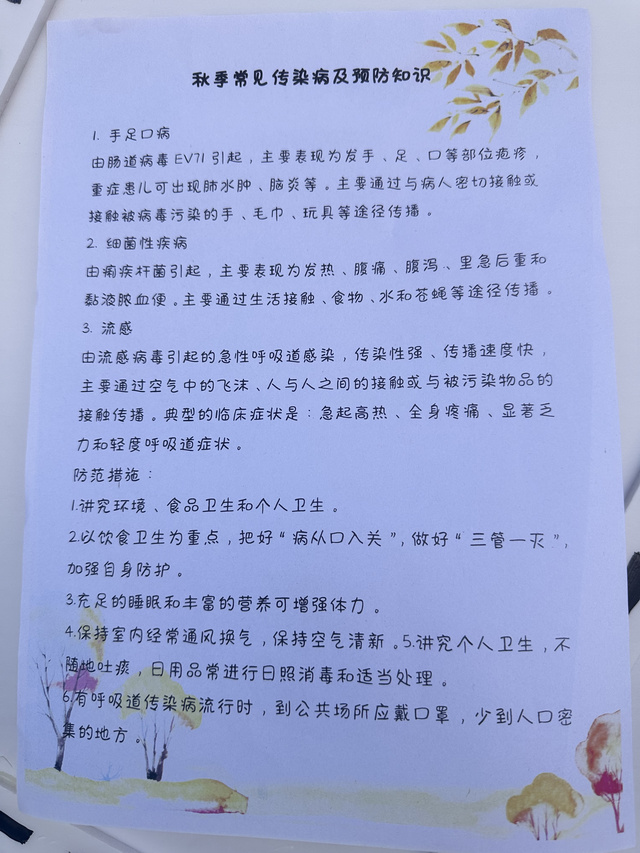 秋季常见传染病及预防知识
1. 手足口病
由肠道病毒EV71引起，主要表现为发手、足、口等部位疱疹，
重症患儿可出现肺水肿、脑炎等。主要通过与病人密切接触或
接触被病毒污染的手、毛巾、玩具等途径传播。
2. 细菌性疾病
由痢疾杆菌引起，主要表现为发热、腹痛、腹泻、里急后重和
黏液脓血便。主要通过生活接触、食物、水和苍蝇等途径传播。
3. 流感
由流感病毒引起的急性呼吸道感染，传染性强、传播速度快，
主要通过空气中的飞沫、人与人之间的接触或与被污染物品的
接触传播。典型的临床症状是：急起高热、全身疼痛、显著乏
力和轻度呼吸道症状。
防范措施：
1.讲究环境、食品卫生和个人卫生。
2.以饮食卫生为重点，把好“病从口入关”，做好“三管一灭”，
加强自身防护。
3.充足的睡眠和丰富的营养可增强体力。
4.保持室内经常通风换气，保持空气清新。5.讲究个人卫生，不
随地吐痰，日用品常进行日照消毒和适当处理。
6.有呼吸道传染病流行时，到公共场所应戴口罩，少到人口密
集的地方。